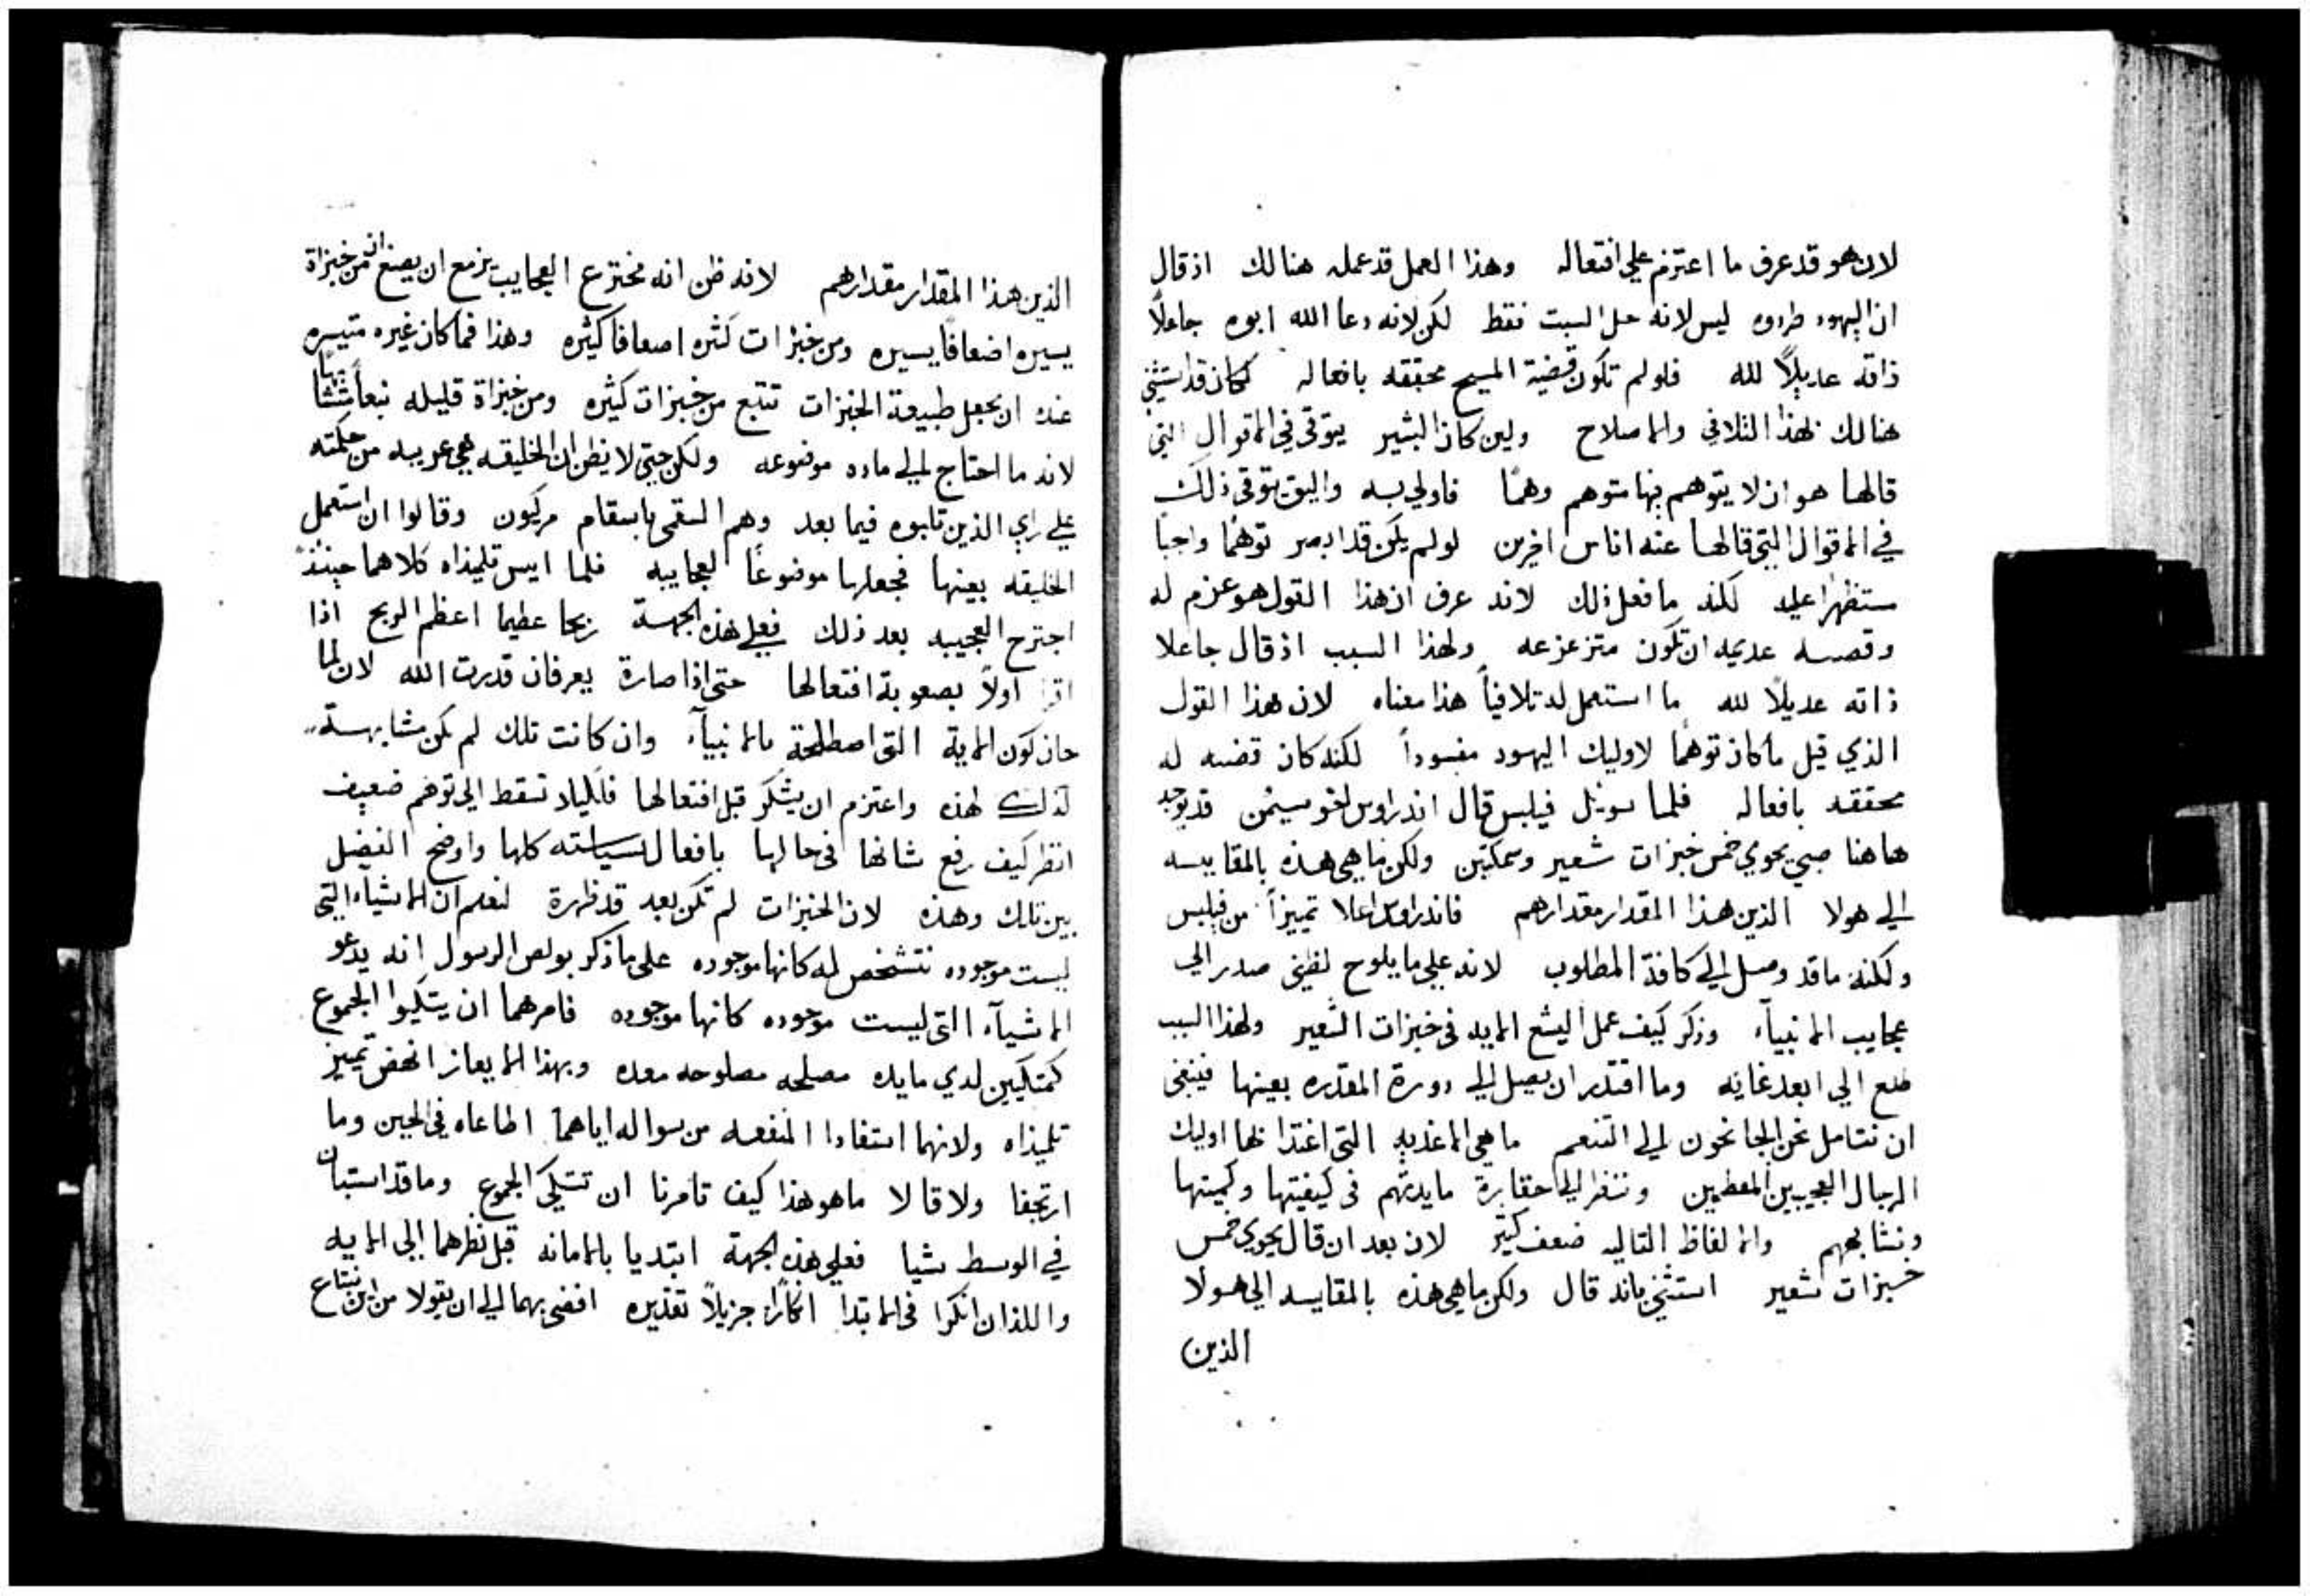 لان هو قد عرف ما اعتزم علي افتعاله وهذا العمل قد عمله هنالك اذ قال
ان اليهود طردوه ليس لانه حل السبت فقط لكن لانه دعا الله ابوه جاعلاً
ذاته عديلاً لله فلو لم تكون قضية المسيح محققه بافعاله لكان قد استثني
هنالك بهذا التلافي والاصلاح ولين كان البشير يتوقي في الاقوال التي
قالها هو ان لا يتوهم بها متوهم وهمًا فاولي به واليق يتوقي ذلك
في الاقوال التي قالها عنه اناس اخرين لو لم يكن قد ابصر توهمًا واجبًا
مستظهرا عليه لكنه ما فعل ذلك لانه عرف ان هذا القول هو عزم له
وقصه عديمه ان تكون متزعزعه ولهذا السبب اذ قال جاعلا
ذاته عديلاً لله ما استعمل له تلافياً هذا معناه لان هذا القول
الذي قيل ما كان توهما لاوليك اليهود مفسوداً لكنه كان قضيه له
محققه بافعاله فلما سويل فيلبس قال اندراوس اخو سيمن قد يوجد
هاهنا صبي يحوي خمس خبزات شعير وسمكتين ولكن ما هي هذه بالمقايسه
الي هولا الذين هذا المقدار مقدارهم فاندراوس اعلا تميزاً من فيلبس
ولكنه ما قد وصل الي كافة المطلوب لانه علي ما يلوح لظني صدر الي
عجايب الانبياء وذكر كيف عمل اليشع الايه في خبزات الشعير ولهذا السبب
طلع الي ابعد غايه وما اقتدر ان يصل الي دورة المقدره بعينها فينبغي
ان نتامل نحن الجانحون الي التنعم ما هي الاغذيه التي اغتذا بها اوليك
الرجال العجيبين المعظمين وننظر الي حقارة مايدتهم في كيفيتها وكميتها
ونشابههم والالفاظ التاليه ضعف كثير لان بعد ان قال يحوي خمس
خبزات شعير استثني بانه قال ولكن ما هي هذه بالمقايسه الي هولا
الذين
الذين هذا المقدار مقدارهم لانه ظن انه مخترع العجايب يزمع ان يصنع من خبزاة
يسيره اضعافًا يسيره ومن خبزات كثره اضعافا كثيره وهذا فما كان غيره متيسره
عنده ان يجعل طبيعة الخبزات تنبع من خبزات كثيره ومن خبزاة قليله نبعاً
لانه ما احتاج الي ماده موضوعه ولكن حتي لا يظن ان الخليقه هي غريبه من حكمته
علي راي الذين ثلبوه فيما بعد وهم السقمي باسقام مركيون وقالوا ان استعمل
الخليقه بعينها فجعلها موضوعًا لعجايبه فلما ايس تلميذاه كلاهما حينئذً
اجترح العجيبه بعد ذلك فعلي هذه الجهة ربحا عظيما اعظم الربح اذا
اولاً بصعوبة افتعالها حتي اذا صارة يعرفان قدرت الله لان لما
حان كون الاية التي اصطلحة بالانبياء وان كانت تلك لم تكن مشابهة
لذلك لهذه واعتزم ان يشكر قبل افتعالها فلكيلا تسقط الي توهم ضعيف
انظر كيف رفع شانها في حالها بافعال سياسته كلها واوضح الفضل
بين تلك وهذه لان الخبزات لم تكن بعد قد ظهرة لنعلم ان الاشياء التي
ليست موجوده تتشخص له كانها موجوده علي ما ذكر بولص الرسول انه يدعو
الاشياء التي ليست موجوده كانها موجوده فامرهما ان يتكيوا الجموع
كمتكيين لدي مايده مصلحه مصلوحه معده وبهذا الايعاز انهض تمييز
تلميذاه ولانهما استفادا المنفعه من سواله اياهما اطاعاه في الحين وما
ارتجفا ولا قالا ما هو هذا كيف تامرنا ان تتيكي الجموع وما قد استبان
في الوسط شيا فعلي هذه الجهة ابتديا بالامانه قبل نظرهما الي الايه
واللذان انكرا في الابتدا انكارًا جزيلاً تقديره افضي بهما الي ان يقولا من اين نبتاع